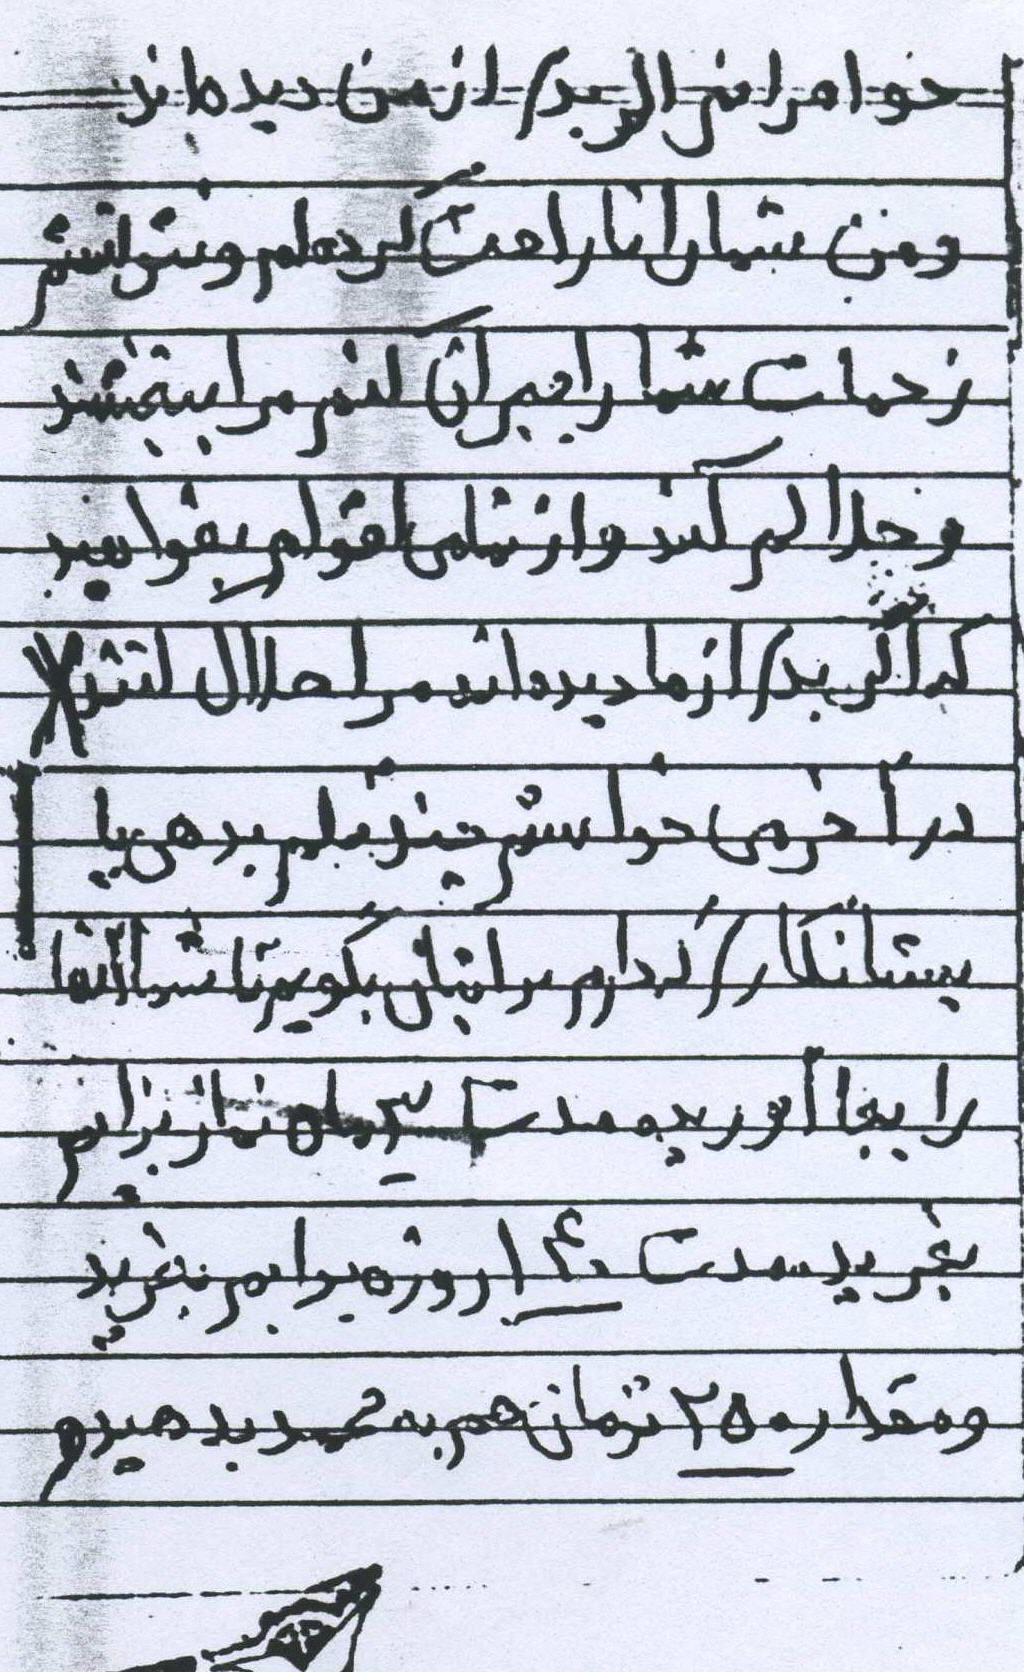 خواهرانم اگر بدی از من دیده‌اند
و من شما را ناراحت کرده‌ام و نتوانستم
زحمات شما را جبران کنم مرا ببخشید
و حلالم کنند و از تمامی اقوام بخواهید
که اگر بدی از ما دیده‌اند مرا حلال کنند
در آخر می خواستم چند قلم بدهی یا
بستانکاری که دارم برایتان بگویم تا شما آنها
را بجا آورید مدت ۳ ماه نماز برایم
بخرید مدت ۱۴۰ روزه برایم بخرید
و مقدار ۲۵۰ تومان هم به بدهید و